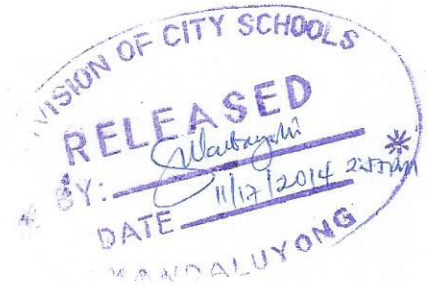 DIVISION OF CITY SCHOOLS
RELEASED
BY:
DATE 11/17/2014
MANDALUYONG